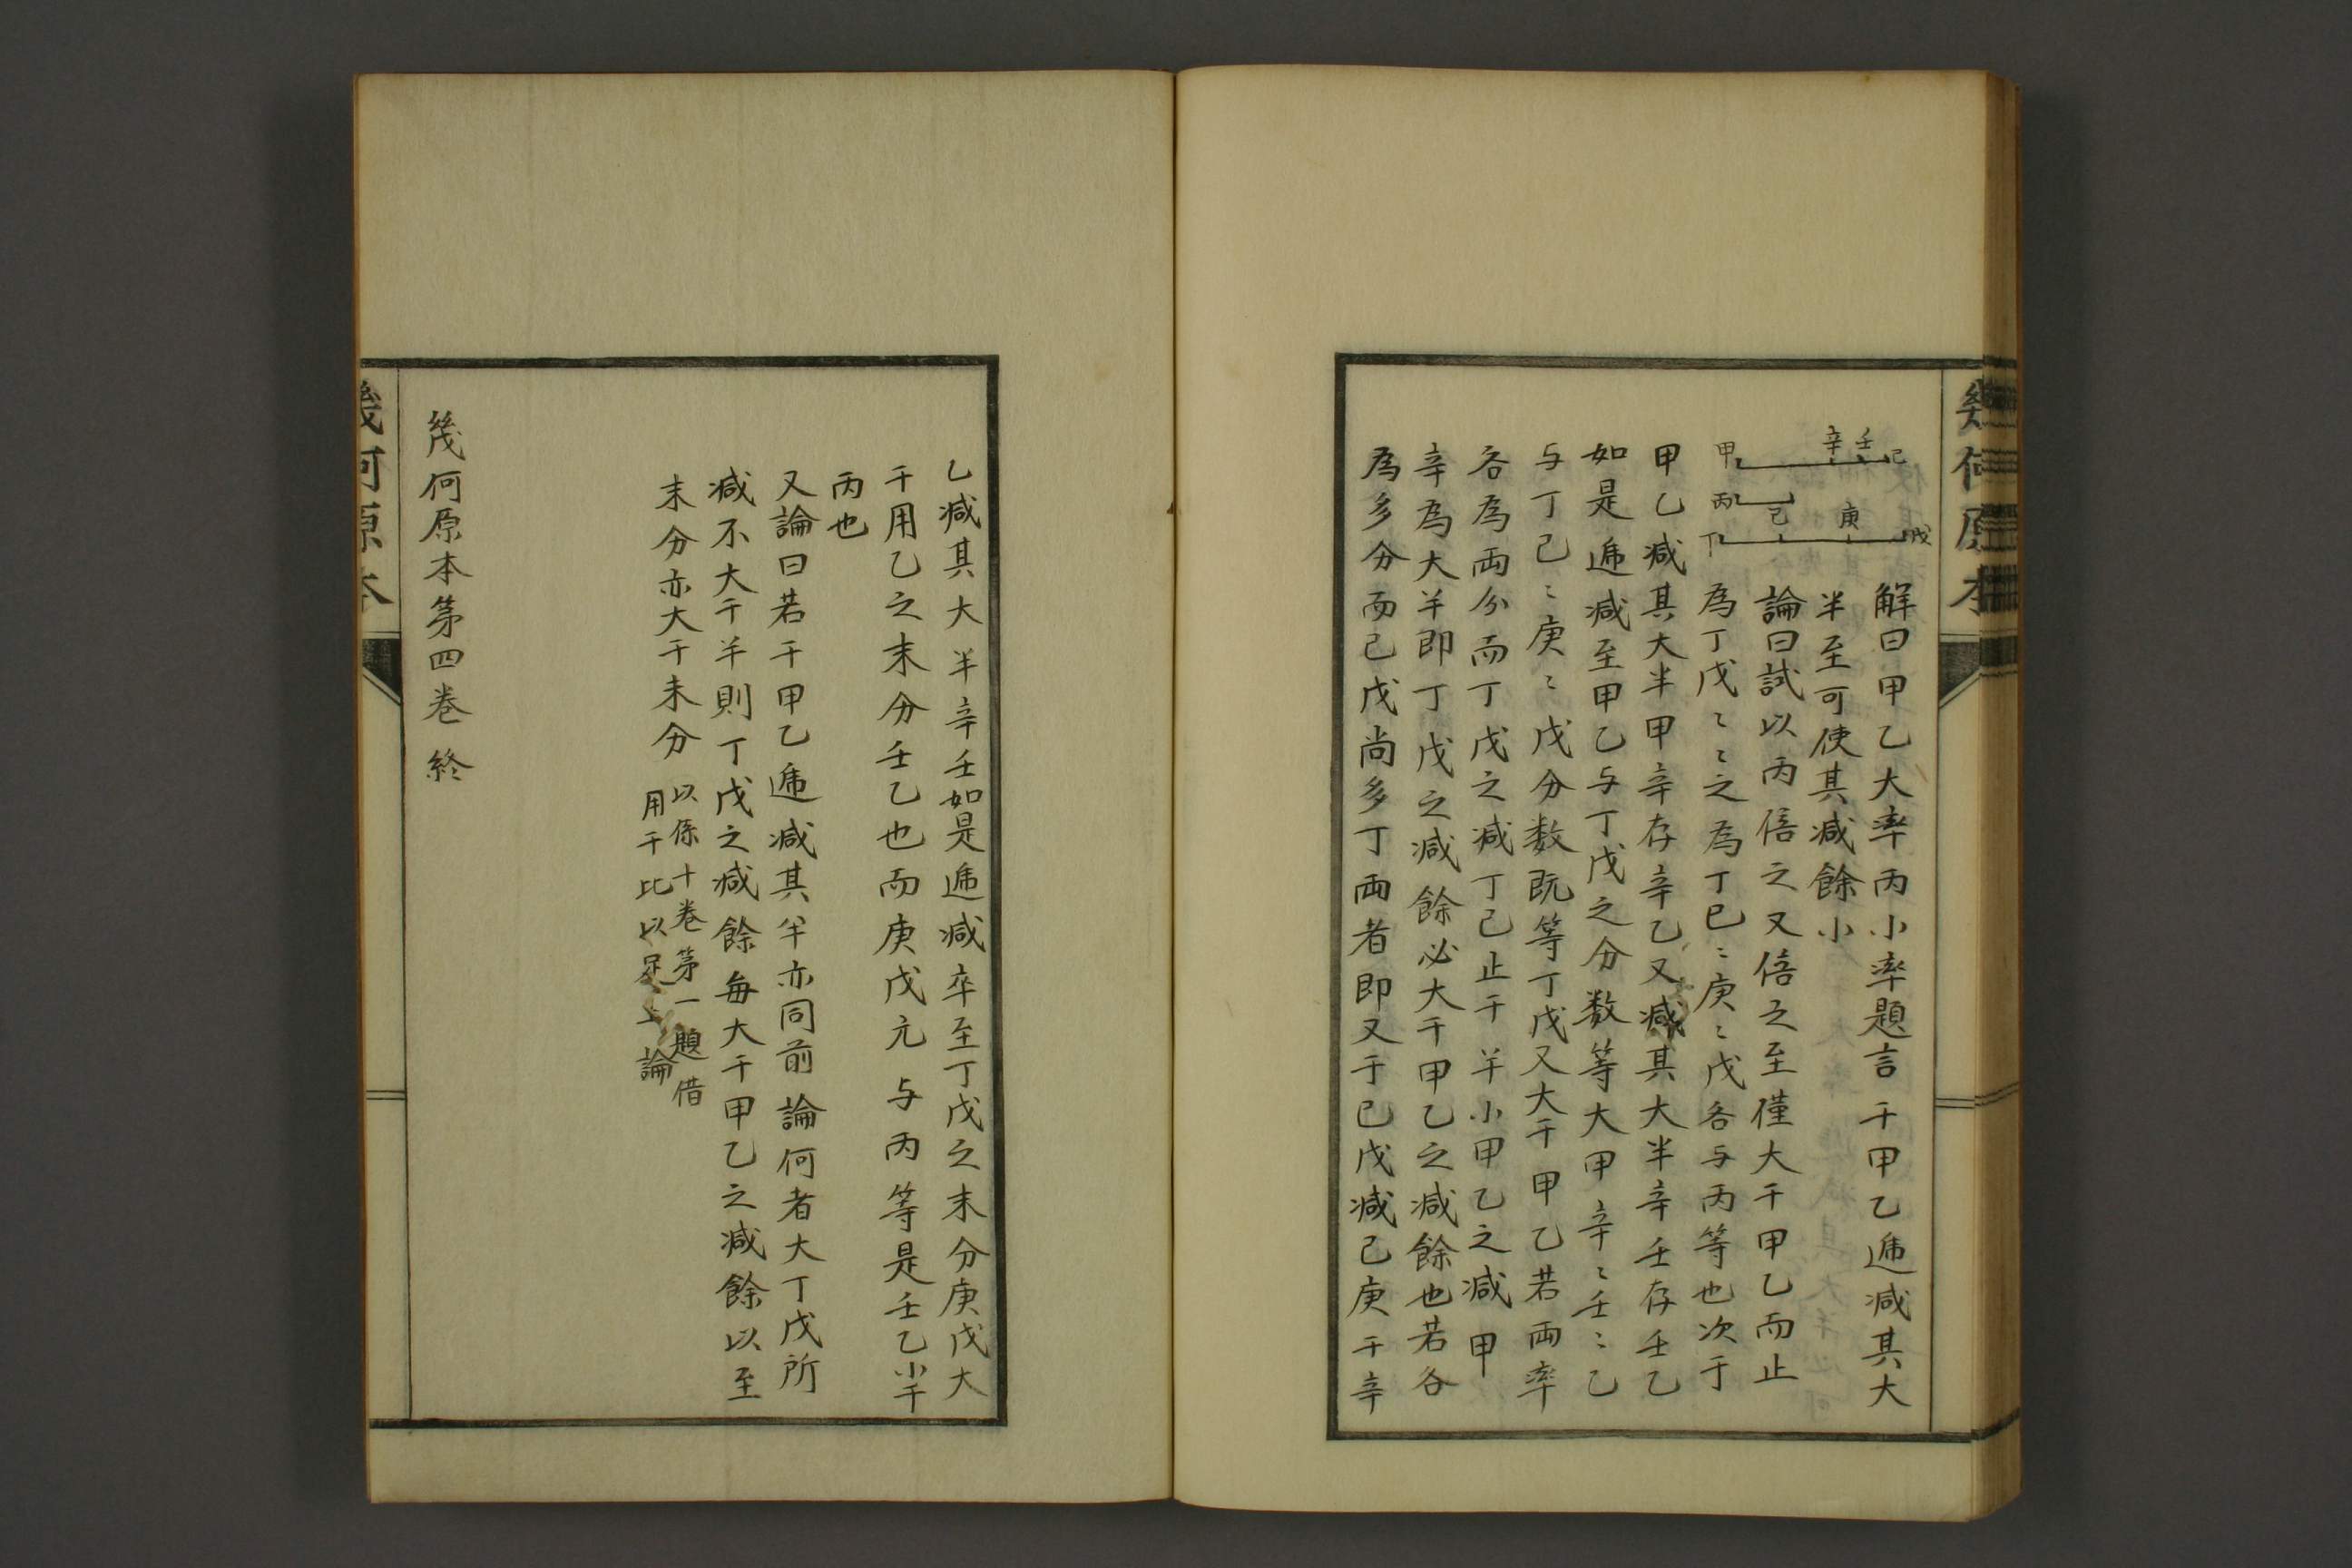 幾何原本
辛 壬 己
甲
丙 己 庚
丁 戊
解曰甲乙大率丙小率題言于甲乙逓减其大
半至可使其减餘小
論曰試以丙倍之又倍之至僅大于甲乙而止
為丁戊〻〻之為丁已〻庚〻戊各与丙等也次于
甲乙减其大半甲辛存辛乙又减其大半辛壬存壬乙
如是逓减至甲乙与丁戊之分数等大甲辛〻壬〻乙
与丁已〻庚〻戊分数既等丁戊又大于甲乙若両率
各為両分而丁戊之减丁己止于半小甲乙之减甲
辛為大半即丁戊之减餘必大于甲乙之减餘也若各
為多分而已戊尚多丁両者即又于已戊减己庚于辛
乙减其大半辛壬如是逓减卒至丁戊之末分庚戊大
于用乙之末分壬乙也而庚戊元与丙等是壬乙小于
丙也
又論曰若于甲乙逓减其半亦同前論何者大丁戊所
减不大于半則丁戊之减餘每大于甲乙之减餘以至
末分亦大于末分
以係十卷第一題借
用于比以足上論
幾何原本第四卷終
幾何原本